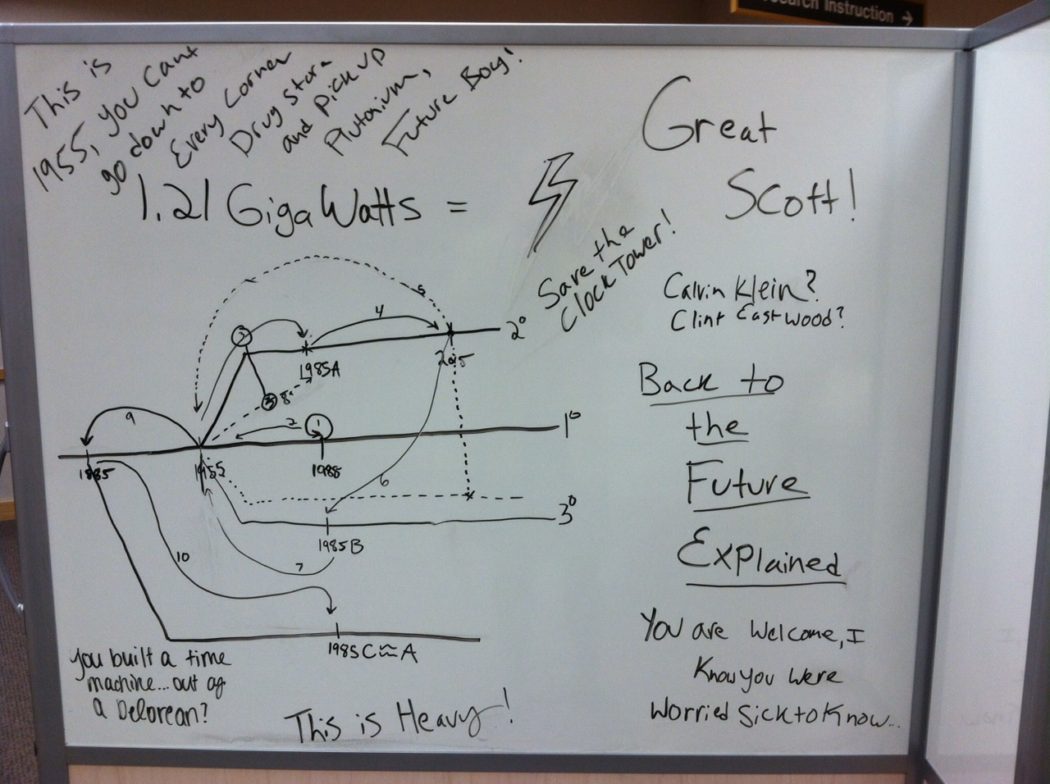 search Instruction →
This is
1955, you cant
go down to
Every Corner
Drug store
and pick up
Plutonium,
Future Boy!
1.21 GigaWatts =
Great
Scott!
Save the
Clock Tower!
Calvin Klein?
Clint Eastwood?
5
4
2°
1985A
2015
8
9
2
1
1°
1885
1955
1985
6
3°
1985B
7
10
1985C≈A
Back to
the
Future
Explained
You are Welcome, I
Know you were
Worried Sick to Know...
you built a time
machine... out of
a Delorean?
This is Heavy!